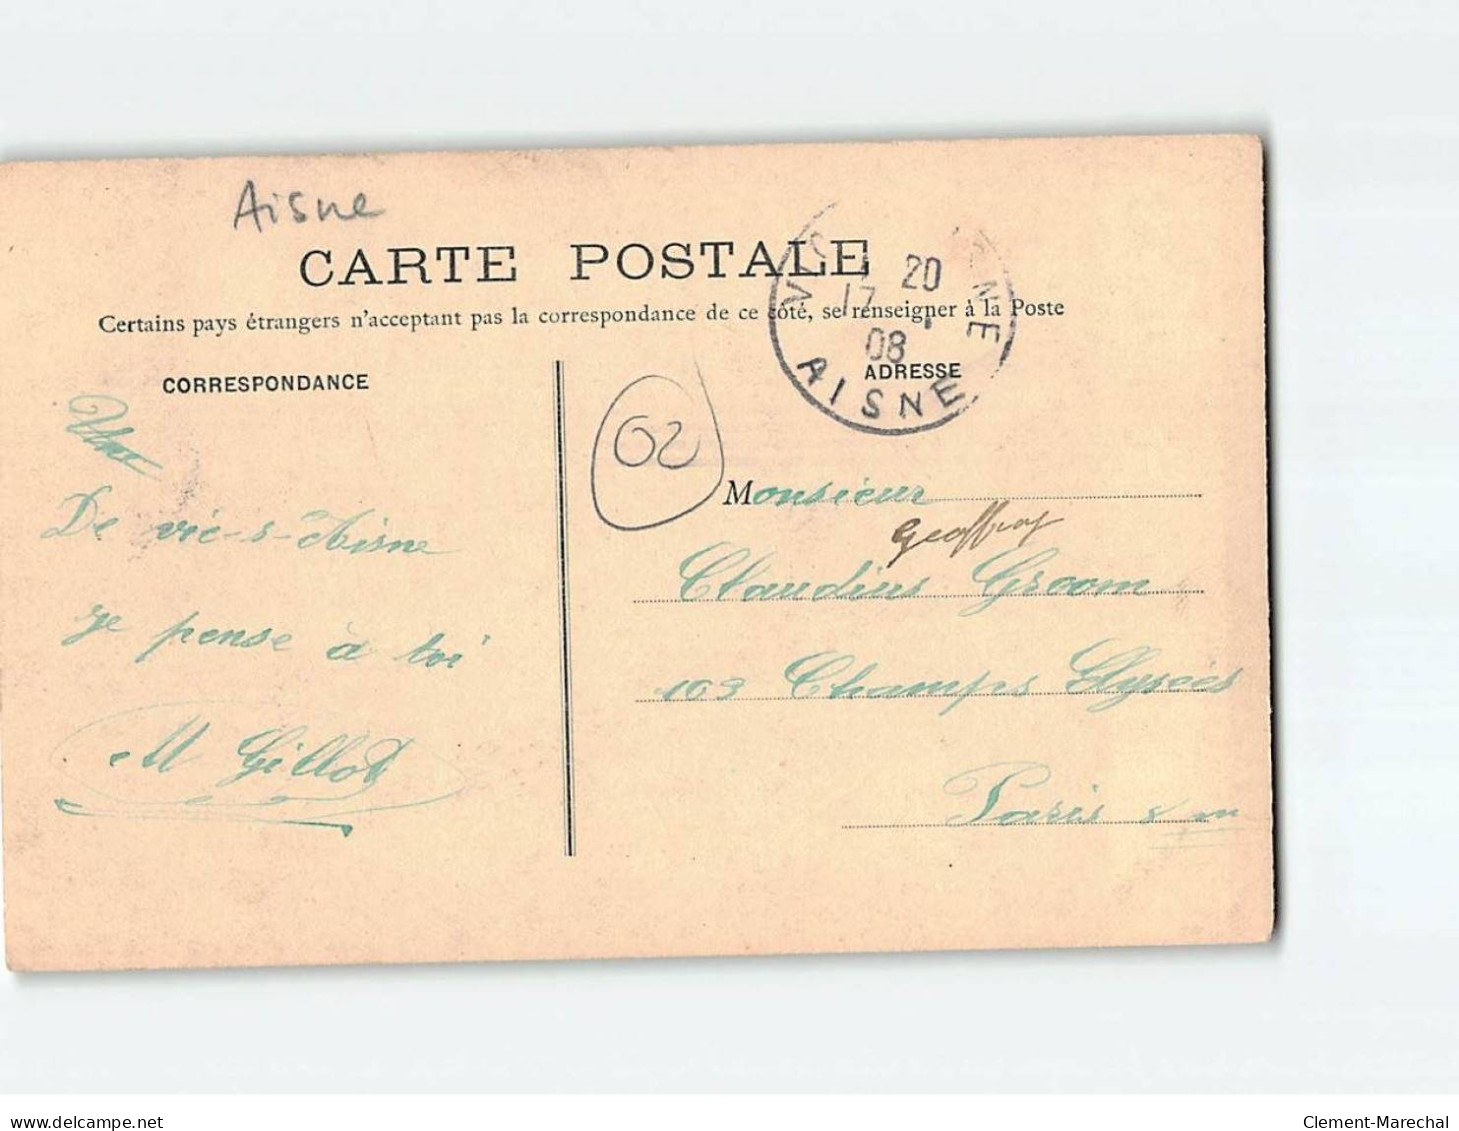 Aisne
CARTE POSTALE
Certains pays étrangers n'acceptant pas la correspondance de ce côté, se renseigner à la Poste
17 20
08
AISNE
CORRESPONDANCE
ADRESSE
02
De vic-s-Aisne
je pense à toi
M Gillot
Monsieur
Geoffroy
Claudius Groom
103 Champs Elysées
Paris
www.delcampe.net
Clement-Marechal